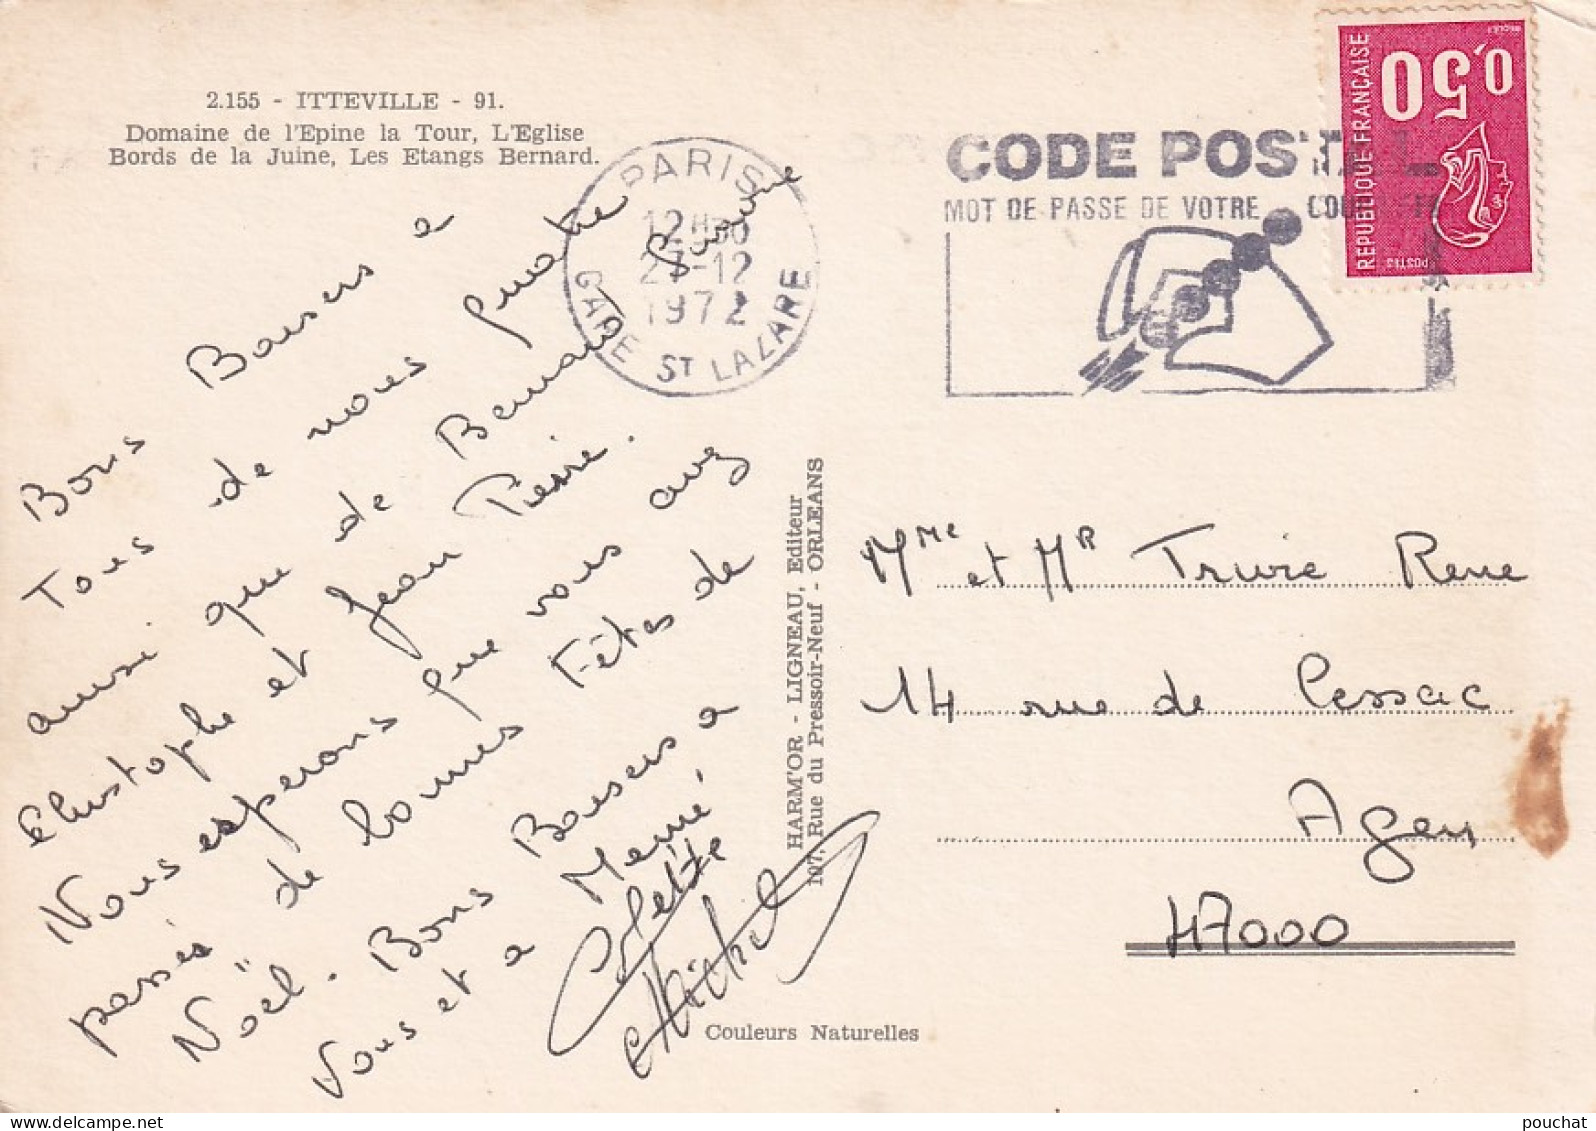 2.155 - ITTEVILLE - 91.
Domaine de l'Epine la Tour, L'Eglise
Bords de la Juine, Les Etangs Bernard.
PARIS
12H30
27-12
1972
GARE ST LAZARE
CODE POSTAL
MOT DE PASSE DE VOTRE
0,50
REPUBLIQUE FRANÇAISE
POSTES
Bons Baisers a
Tous de nous quatre
ainsi que de Bernard
Christophe et Jean Pierre.
Nous esperons que vous avez
passés de bonnes Fêtes de
Noël. Bons Baisers a
Vous et a Memé
Colette
Michel
HARM'OR - LIGNEAU, Editeur
107, Rue du Pressoir-Neuf - ORLEANS
Couleurs Naturelles
Mme et MR Trivie Rene
14 rue de Cessac
Agen
47000
pouchat